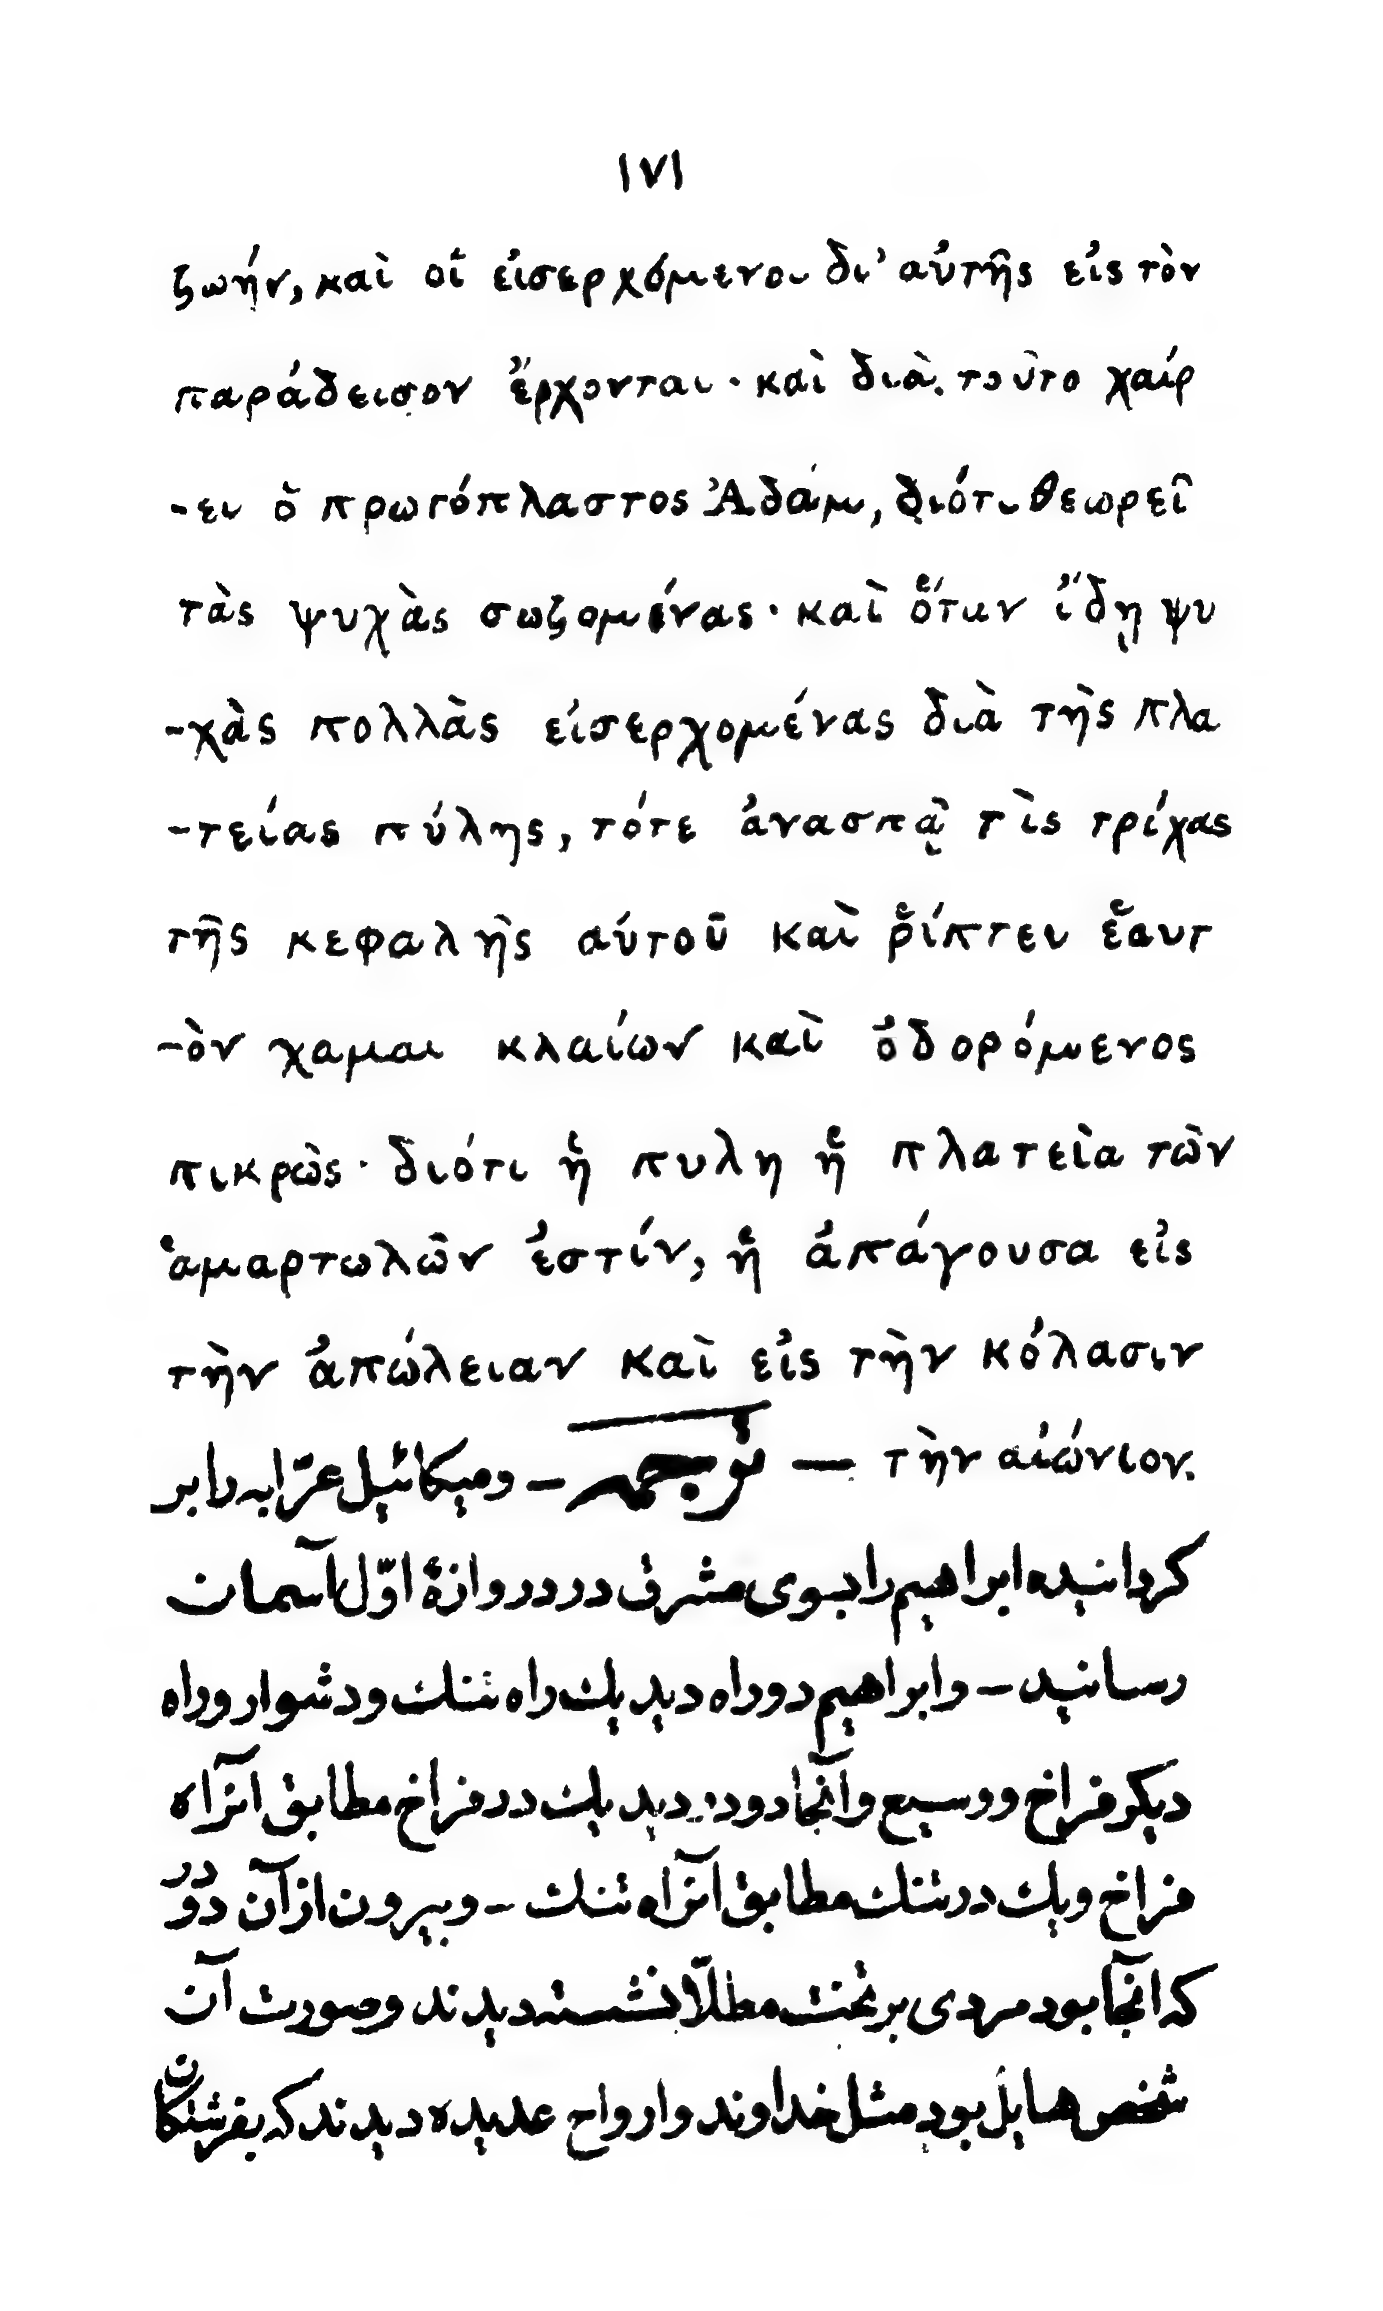 ۱۷۱
ζωήν, καὶ οἵ εἰσερχόμενοι δι' αὐτῆς εἰς τὸν
παράδεισον ἔρχονται· καὶ διὰ τοῦτο χαίρ
-ει ὁ πρωτόπλαστος Ἀδάμ, διότι θεωρεῖ
τὰς ψυχὰς σωζομένας· καὶ ὅταν ἴδῃ ψυ
-χὰς πολλὰς εἰσερχομένας διὰ τῆς πλα
-τείας πύλης, τότε ἀνασπᾷ τὶς τρίχας
τῆς κεφαλῆς αὐτοῦ καὶ ῥίπτει ἑαυτ
-ὸν χαμαι κλαίων καὶ ὀδορόμενος
πικρῶς· διότι ἡ πυλη ἡ πλατεῖα τῶν
ἁμαρτωλῶν ἐστίν, ἡ ἀπάγουσα εἰς
τὴν ἀπώλειαν καὶ εἰς τὴν κόλασιν
τὴν αἰώνιον. — ترجمه — وميكائيل عرّابه را بر
كردانيده ابراهيم را بسوى مشرق در دروازهٔ اوّل آسمان
رسانيد — وابراهيم دو راه ديد يك راه تنك ودشوار وراه
ديكر فراخ ووسيع وآنجا دو در ديد يك در فراخ مطابق آنراه
فراخ ويك در تنك مطابق آنراه تنك — وبيرون از آن دو در
كه آنجا بود مردى بر تخت مطلّا نشسته ديدند وصورت آن
شخص هايل بود مثل خداوند وارواح عديده ديدند كه بفرشتكان